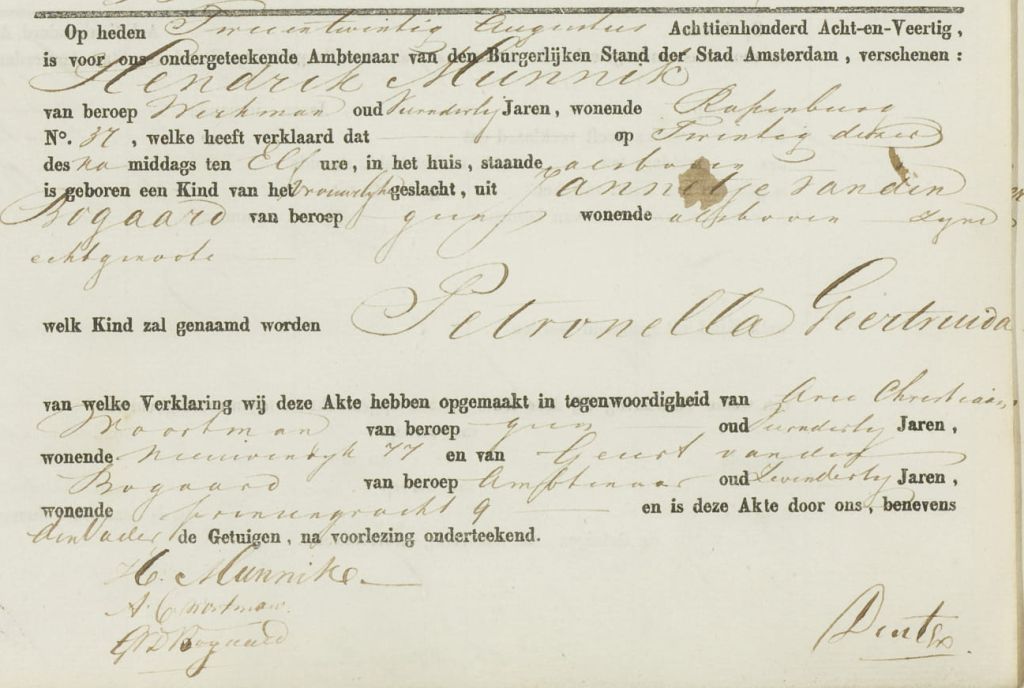 Op heden Tweeentwintig Augustus Achttienhonderd Acht-en-Veertig,
is voor ons ondergeteekende Ambtenaar van den Burgerlijken Stand der Stad Amsterdam, verschenen:
Hendrik Munnik
van beroep Werkman oud Jaren, wonende Rapenburg
No. 37, welke heeft verklaard dat op Twintig dezer
des na middags ten Elf ure, in het huis, staande alsboven
is geboren een Kind van het vrouwelijk geslacht, uit Jannetje van den
Bogaard van beroep geen wonende alsboven zyne
echtgenoote
welk Kind zal genaamd worden Petronella Geertruida
van welke Verklaring wij deze Akte hebben opgemaakt in tegenwoordigheid van Arie Christiaan
Woortman van beroep geen oud Jaren,
wonende Nieuwendyk 77 en van Geurt van den
Bogaard van beroep Ambtenaar oud Jaren,
wonende prinsengracht 9 en is deze Akte door ons, benevens
den vader de Getuigen, na voorlezing onderteekend.
H. Munnik
A. C. Woortman.
GVD Bogaard